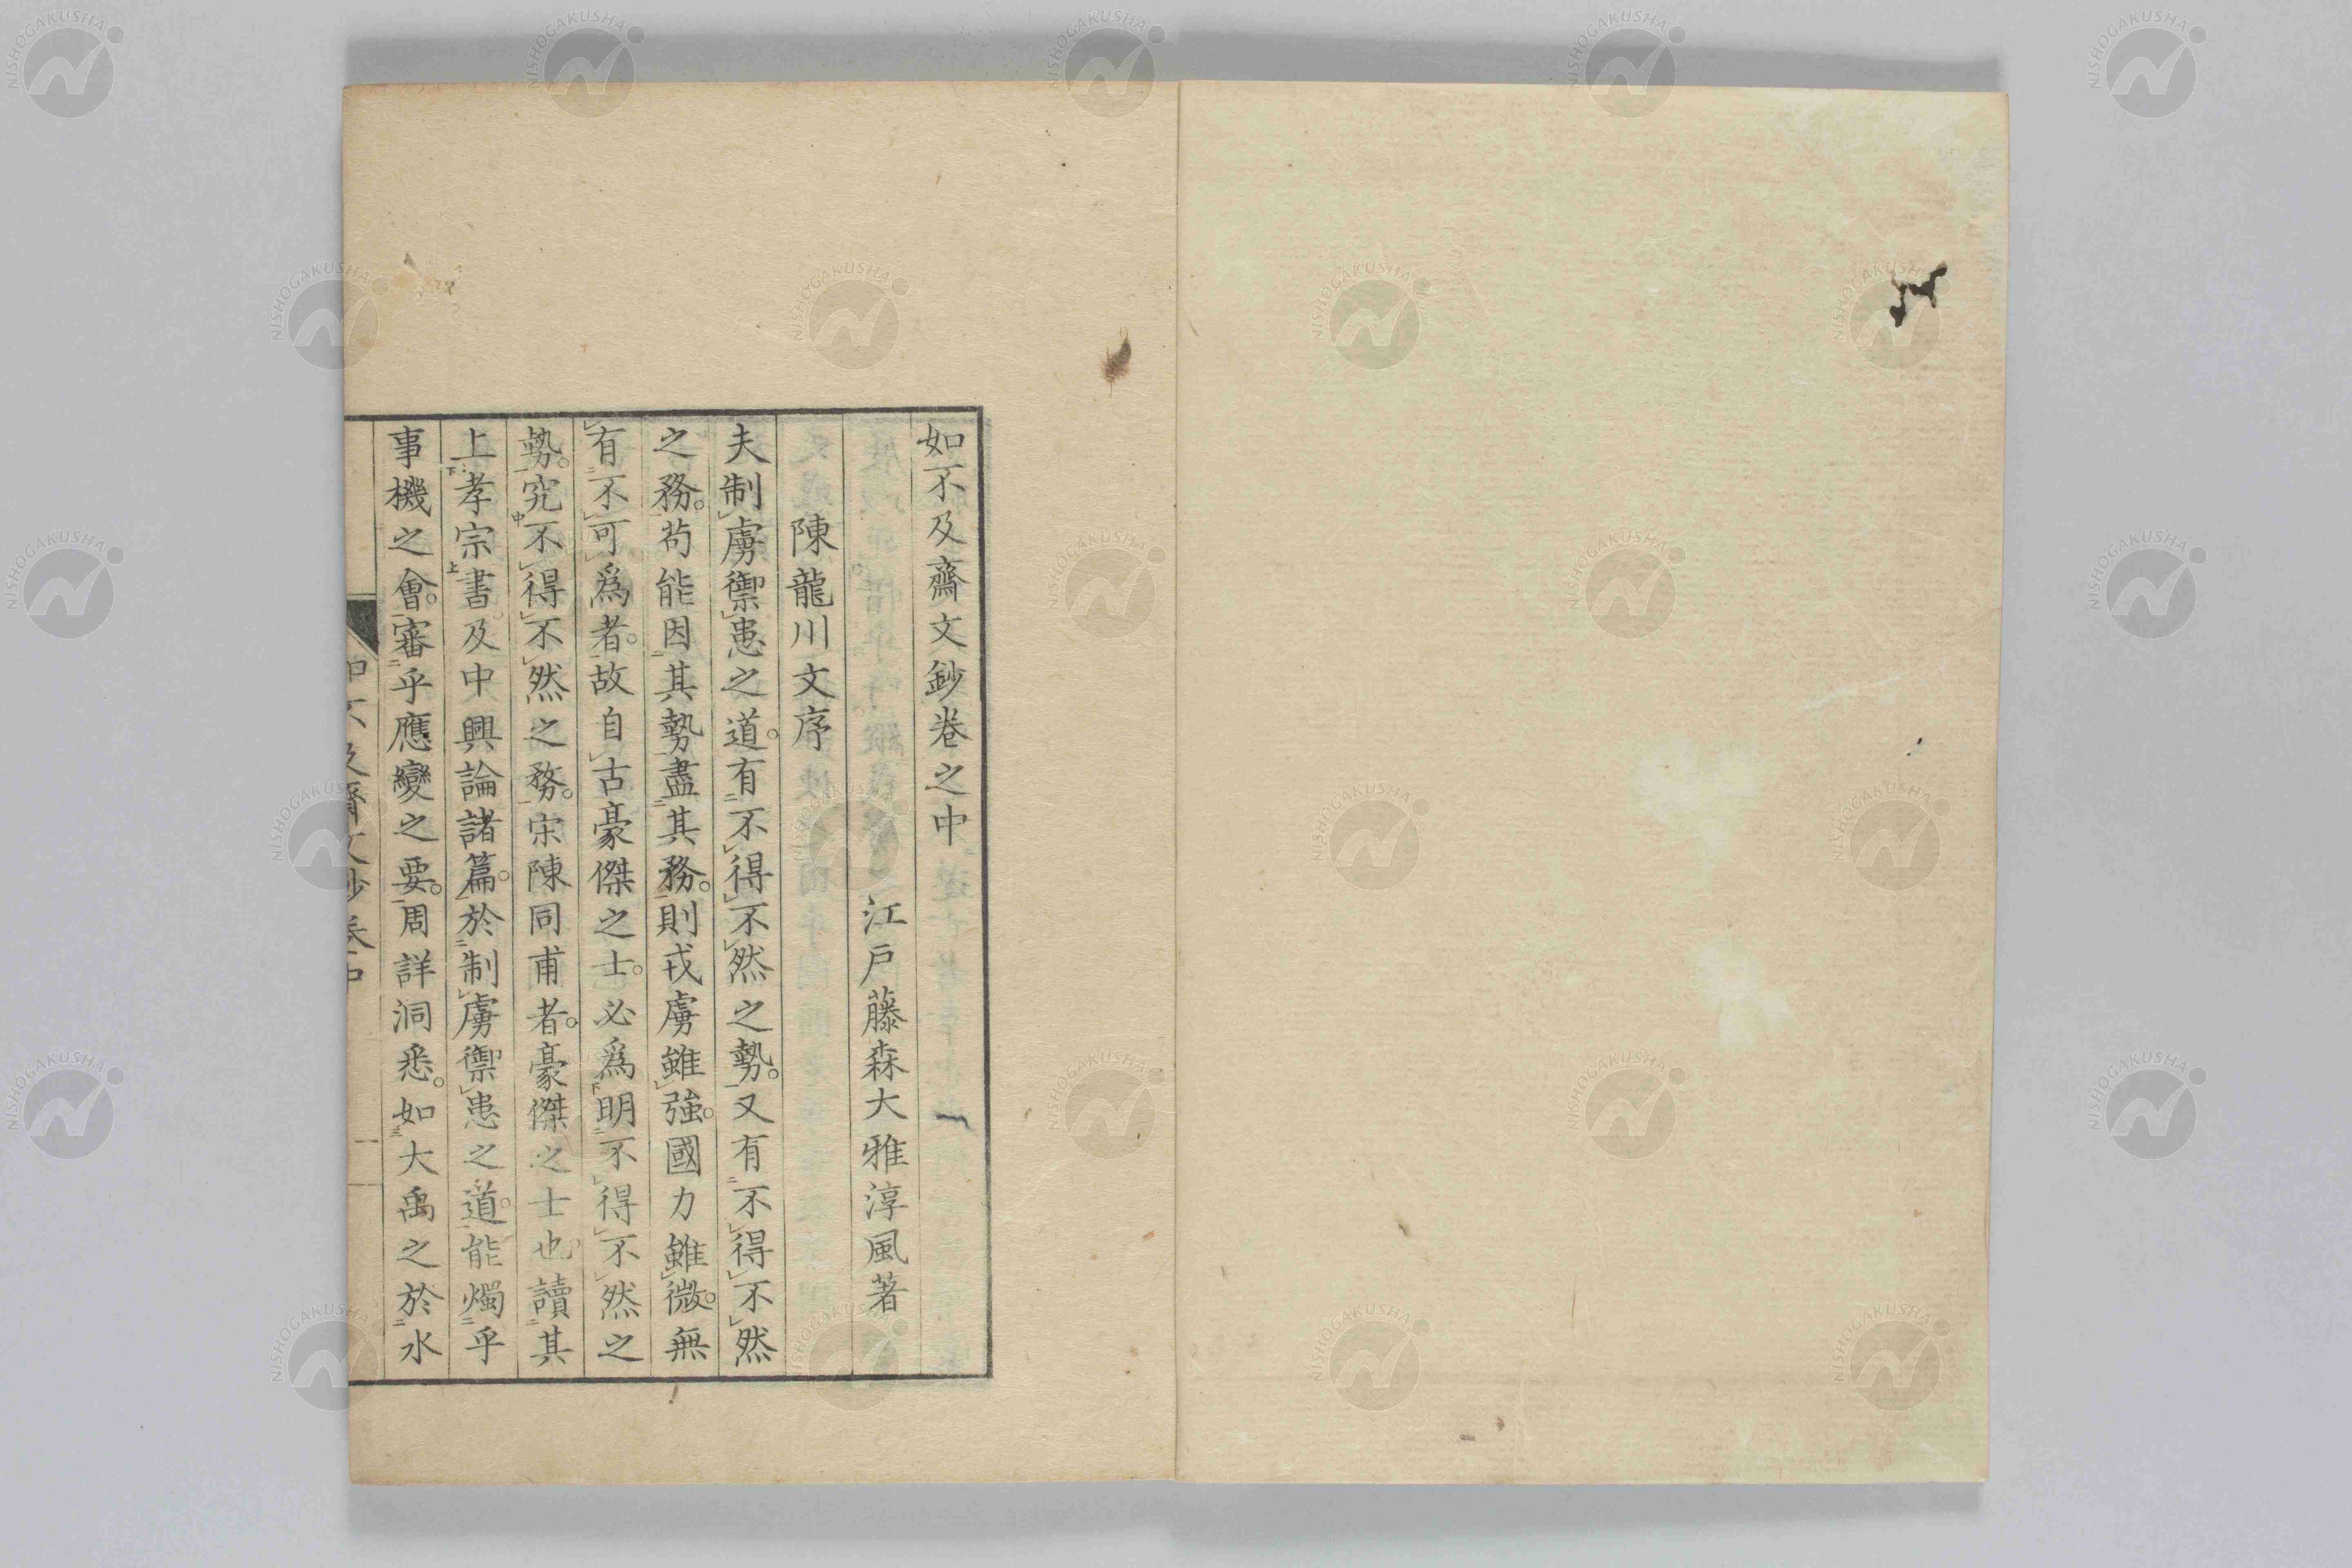 如不及齋文鈔卷之中
江戸藤森大雅淳風著
陳龍川文序
夫制虜禦患之道。有不得不然之勢。又有不得不然
之務。苟能因其勢盡其務。則戎虜雖強。國力雖微。無
有不可爲者。故自古豪傑之士。必爲明不得不然之
勢。究不得不然之務。宋陳同甫者。豪傑之士也讀其
上孝宗書及中興論諸篇。於制虜禦患之道。能燭乎
事機之會。審乎應變之要。周詳洞悉。如大禹之於水
如不及齋文鈔卷中
一
NISHOGAKUSHA